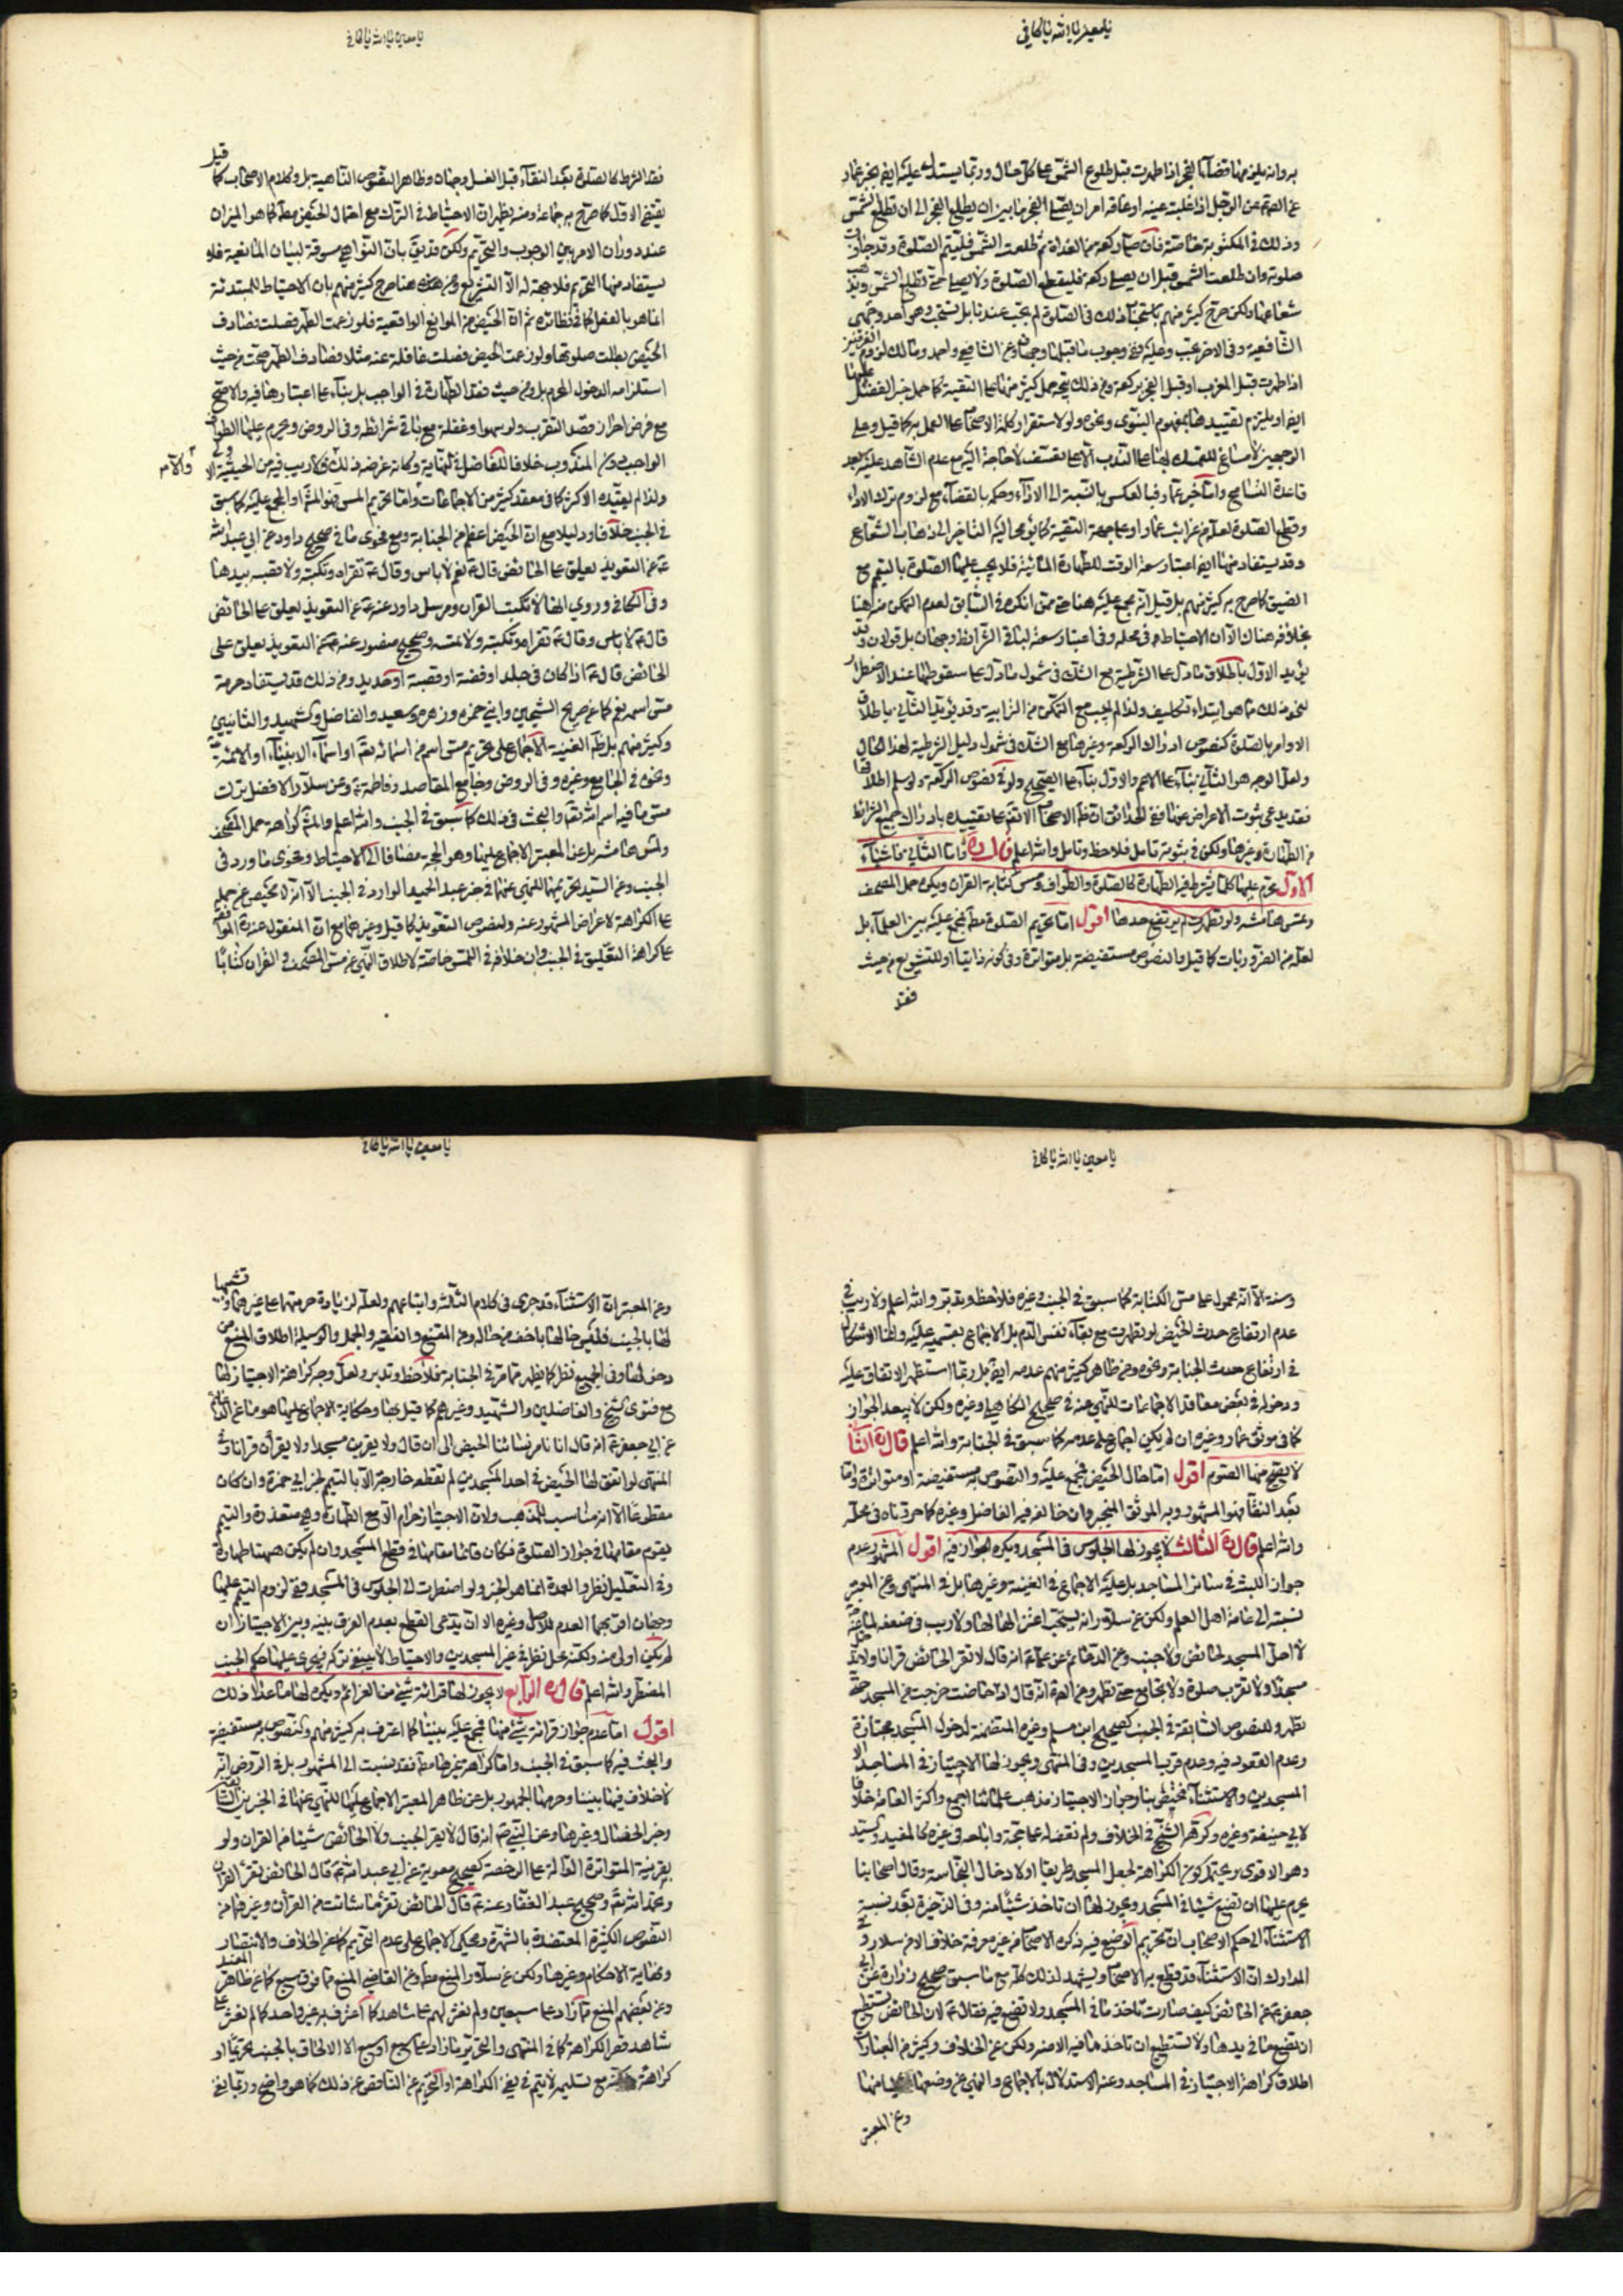 يا معين يا الله يا كافي
به وانه يلزمها قضاء الفجر اذا طهرت قبل طلوع الشمس على كل حال وربما يستدل عليه ايضا بخبر عمار
عن الصم عن الرجل اذا غلبته عينه او عاقه امر ان يصلي الفجر ما بين ان يطلع الفجر الى ان تطلع الشمس
وذلك في المكتوبة خاصة فان صلى ركعة من الغداة ثم طلعت الشمس فليتم الصلوة وقد جازت
صلوته وان طلعت الشمس قبل ان يصلي ركعة فليقطع الصلوة ولا يصلي حتى تطلع الشمس ويذهب
شعاعها ولكن صرح كثير منهم باستحباب ذلك في الصلوة لم يجب عندنا بل نستحب وهو احد وجهي
الشافعية وفي الاخر يجب وعليه ففي وجوب ما قبلها وجهان وعن الشافعي واحمد ومالك لزوم الفرضين
اذا طهرت قبل المغرب او قبل الفجر بركعة ومن ذلك يتجه حمل كثير منها على التقية كما حمل خبر الفضل عليها
ايضا او يلتزم تقييدها بمفهوم النبوي ونحوه ولو لاستقرار كلمة الاصحاب على العمل به كما قيل وعلى
الوجهين لا مساغ للتمسك بها على الندب الا على تعسف لا حاجة اليه مع عدم الشاهد عليه بعد
قاعدة التسامح واما خبر عمار فبالعكس بالنسبة الى الاداء وحكمه بالقضاء مع لزوم ترك الاداء
وقطع الصلوة لعله من غرايب عمار او على جهة التقية كما يومي اليه التاخير الى ذهاب الشعاع
وقد يستفاد منها ايضا اعتبار سعة الوقت للطهارة المائية فلا يجب عليها الصلوة بالتيمم مع
الضيق كما صرح به كثير منهم بل قيل انه مجمع عليه هنا حتى ممن انكره في السابق لعدم التمكن منه هنا
بخلافه هناك الا ان الاحتياط مر في محله وفي اعتبار سعة لباقي الشرائط وجهان بل قولان وقد
يؤيد الاول باطلاق ما دل على الشرطية مع الشك في شمول ما دل على سقوطها عند الاضطرار
لنحو ذلك مما هو ابتداء تكليف ولذا لم يجب مع التمكن من الترابية وقد يؤيد الثاني باطلاق
الاوامر بالصلوة كنصوص ادراك الركعة وغيرها مع الشك في شمول دليل الشرطية لهذا الحال
ولعل الوجه هو الثاني بناء على الاعم والاول بناء على الصحيح ولو في نصوص الركعة ولو سلم اطلاقها
فقد يدعى ثبوت الاعراض عنها ففي الحدائق ان ظاهر الاصحاب الاتفاق على تقييده بادراك جميع الشرائط
من الطهارة وغيرها ولكن في ثبوته تامل فلاحظ وتامل والله اعلم قال ره فاما الثاني فاشياء
الاول يحرم عليها كلما يشترط فيه الطهارة كالصلوة والطواف ومس كتابة القران ويكره حمل المصحف
ولمس هامشه ولو تطهرت لم يرتفع حدثها اقول اما تحريم الصلوة مطلقا فمجمع عليه بين العلماء بل
لعله من الضروريات كما قيل والنصوص مستفيضة بل متواترة وفي كونه ذاتيا او للتشريع من حيث
فقد
يا معين يا الله يا كافي
فقد الشرط كالصلوة بعد النقاء قبل الغسل وجهان وظاهر النصوص الناهية بل وكلام الاصحاب كما قيل
يقتضي الاول كما صرح به جماعة ومنه يظهر ان الاحتياط في الترك مع احتمال الحيض مطلقا كما هو الميزان
عند دوران الامر بين الوجوب والتحريم ولكن قد يق بان النواهي مسوقة لبيان المانعية فلا
يستفاد منها التحريم فلا جهة له الا التشريع ومن هذه هنا صرح كثير منهم بان الاحتياط للمبتدئة
انما هو بالفعل كما في نظائره ثم ان الحيض من الموانع الواقعية فلو زعمت الطهر فصلت فصادف
الحيض بطلت صلوتها ولو زعمت الحيض فصلت غافلة عنه مثلا فصادف الطهر صحت من حيث
استلزامه الدخول المحرم بل ومن حيث فقد الطهارة في الواجب بل بناء على اعتبارها فيه والاصح
مع فرض احراز قصد التقرب ولو سهوا وغفلة مع باقي شرائطه وفي الروض ويحرم عليها الطواف
الواجب وفي المندوب خلافا للفاضل في النهاية وكانه غرضه ذلك ولا ريب فيه من الحيثية الا ولى والا م
ولذا لم يقيده الاكثر كما في معقد كثير من الاجماعات واما تحريم المس فهو المشهور او المجمع عليه كما سبق
في الجنب خلافا ودليلا مع ان الحيض اعظم من الجنابة ومع فحوى ما في صحيح داود عن ابي عبد الله
ع عن التعويذ يعلق على الحائض قال ع نعم لا باس وقال ع تقراه وتكتبه ولا تصيبه بيدها
وفي الكافي وروي انها لا تكتب القران ومرسل داود عنه ع عن التعويذ يعلق على الحائض
قال ع لا باس وقال ع تقراه وتكتبه ولا تمسه وصحيح منصور عنه ع عن التعويذ يعلق على
الحائض قال ع اذا كان في جلد او فضة او قصبة او حديد ومن ذلك قد يستفاد حرمة
مس اسمه تعم كما عن صريح الشيخين وابني حمزه وزهره وسعيد والفاضل والشهيد والثانيين
وكثير منهم بل ظاهر الغنية الاجماع على تحريم مس اسم من اسمائه تعم او اسماء الانبياء او الائمة
ونحوه في الجامع وغيره وفي الروض وجامع المقاصد وفاطمة ع وعن سلار الافضل ترك
مس ما فيه اسم الله تعم والبحث في ذلك كما سبق في الجنب والله اعلم والمشهور كراهة حمل المصحف
ولمس هامشه بل عن المعتبر الاجماع عليها وهو الحجة مضافا الى الاحتياط وفحوى ما ورد في
الجنب وعن السيد تحريمهما للنهي عنهما في خبر عبد الحميد الوارد في الجنب الا انه لا محيص عن حمله
على الكراهة لاعراض المشهور عنه ولنصوص التعويذ كما قيل وغيرها مع ان المنقول عنه ره الموافقة
على كراهة التعليق في الجنب وان خلافه في اللمس خاصة لاطلاق النهي عن مس المصحف والقران كتابا
يا معين يا الله يا كافي
وسنة الا انه محمول على مس الكتابة كما سبق في الجنب وغيره فلاحظ وتدبر والله اعلم ولا ريب في
عدم ارتفاع حدث الحيض لو تطهرت مع بقاء نفس الدم بل الاجماع بقسميه عليه وانما الاشكال
في ارتفاع حدث الجنابة ونحوه ومن ظاهر كثير منهم عدمه ايضا بل ربما استظهر الاتفاق عليه
ودخوله في بعض معاقد الاجماعات للنهي عنه في صحيح الكاهلي وغيره ولكن لا يبعد الجواز
كما في موثق عمار وغيره ان لم يكن اجماع على عدمه كما سبق في الجنابة والله اعلم قال ره الثاني
لا يصح منها الصوم اقول اما حال الحيض فمجمع عليه والنصوص به مستفيضة او متواترة واما
بعد النقاء فهو المشهور وبه الموثق المنجبر وان خالف فيه الفاضل وغيره كما حررناه في محله
والله اعلم قال ره الثالث لا يجوز لها الجلوس في المسجد ويكره الجواز فيه اقول المشهور عدم
جواز اللبث في سائر المساجد بل عليه الاجماع في الغنية وغيرها بل في المنتهى وعن المعتبر
نسبته الى عامة اهل العلم ولكن عن سلار انه يستحب اعتزالها لها ولا ريب في ضعفه لما عنه ص
لا احل المسجد لحائض ولا جنب وعن الدعائم عن علي ع انه قال لا تقرا الحائض قرانا ولا تدخل
مسجدا ولا تقرب صلوة ولا تجامع حتى تطهر وعن العدة انه قال اذا حاضت خرجت من المسجد حتى
تطهر وللنصوص السابقة في الجنب كصحيح ابن مسلم وغيره المتضمنة لدخول المسجد مجتازة
وعدم القعود فيه وعدم قرب المسجدين وفي المنتهى ويجوز لها الاجتياز في المساجد الا
المسجدين والاستثناء مختص بنا وجواز الاجتياز مذهب علمائنا اجمع واكثر العامة خلافا
لابي حنيفة وغيره وكرهه الشيخ في الخلاف ولم نقف له على حجة وتابعه في غيره كالمفيد والسيد
وهو الاقوى ويحتمل كون الكراهة لجعل المسجد طريقا او لادخال النجاسة وقال اصحابنا
يحرم عليها ان تضع شيئا في المسجد ويجوز لها ان تاخذ شيئا منه وفي الذخيرة بعد نسبة
الاستثناء الى حكم الاصحاب ان تحريم الوضع فيه ذكره الاصحاب من غير معرفة خلاف الا من سلار وفي
المدارك ان الاستثناء قد قطع به الاصحاب ويشهد لذلك كله مع ما سبق صحيح زرارة عن ابي
جعفر ع عن الحائض كيف صارت تاخذ ما في المسجد ولا تضع فيه فقال ع لان الحائض تستطيع
ان تضع ما في يدها ولا تستطيع ان تاخذ ما فيه الا منه ولكن عن الخلاف وكثير من العبارات
اطلاق كراهة الاجتياز في المساجد وعنه الاستدلال بالاجماع والنهي عن وضعها منها
وعن المعتبر
يا معين يا الله يا كافي
وعن المعتبر ان الاستثناء قد جرى في كلام الثلاثة واتباعهم ولعله لزيادة حرمتهما على غيرهما وتشبيهها
لها بالجنب فليس حالها باخف من حاله وعن المقنع والفقيه والجمل والوسيلة اطلاق المنع من
دخولها وفي الجميع نظر كما يظهر مما مر في الجنابة فلاحظ وتدبر ولعل وجه كراهة الاجتياز لها
مع فتوى الشيخ والفاضلين والشهيد وغيرهم كما قيل بها وحكاية الاجماع عليها هو ما عن الدعائم
عن ابي جعفر ع انه قال انا نامر نسائنا الحيض الى ان قال ولا يقربن مسجدا ولا يقرأن قرانا وفي
المنتهى لو اتفق لها الحيض في احد المسجدين لم تقطعه خارجة الا بالتيمم لخبر ابي حمزة وان كان
مقطوعا الا انه مناسب للمذهب ولان الاجتياز حرام الا مع الطهارة وهي متعذرة والتيمم
يقوم مقامها في جواز الصلوة فكان قائما مقامها في قطع المسجد وان لم يكن هيهنا طهارة
وفي التعليل نظر والعمدة انما هو الخبر ولو اضطرت الى الجلوس في المسجد ففي لزوم التيمم عليها
وجهان اقربهما العدم للاصل وغيره الا ان يدعى القطع بعدم الفرق بينه وبين الاجتياز ان
لم يكن اولى منه ولكنه محل نظر في غير المسجدين والاحتياط لا ينبغي تركه فيجري عليها حكم الجنب
المضطر والله اعلم قال ره الرابع لا يجوز لها قرائة شيء من العزائم ويكره لها ما عدا ذلك
اقول اما عدم جواز قرائة شيء منها فمجمع عليه بيننا كما اعترف به كثير منهم والنصوص به مستفيضة
والبحث فيه كما سبق في الجنب واما كراهة غيرها مطلقا فقد نسبت الى المشهور بل في الروض انه
لا خلاف فيها بيننا وحرمها الجمهور بل عن ظاهر المعتبر الاجماع عليها للنهي عنها في الخبرين السابقين
وخبر الخصال وغيرها وعن النبي ص انه قال لا يقرا الجنب ولا الحائض شيئا من القران ولو
بقرينة المتواترة الدالة على الرخصة كصحيح معوية عن ابي عبد الله ع قال الحائض تقرأ القران
وتحمد الله تعم وصحيح عبد الغفار عنه ع قال الحائض تقرأ ما شائت من القرآن وغيرهما من
النصوص الكثيرة المعتضدة بالشهرة ومحكي الاجماع على عدم التحريم كما عن الخلاف والانتصار
ونهاية الاحكام وغيرها ولكن عن سلار المنع مطلقا وعن القاضي المنع مما فوق سبع كما عن ظاهر المفيد
وعن بعضهم المنع مما زاد على سبعين ولم نعثر لهم على شاهد كما اعترف به غير واحد كما لم نعثر على
شاهد قصر الكراهة كما في المنتهى والتحرير بما زاد على سبع او سبع الا الالحاق بالجنب تحريما او
كراهة ولكنه مع تسليمه لا يتم في نفي الكراهة او التحريم عن الناقص عن ذلك كما هو واضح وربما ينفى